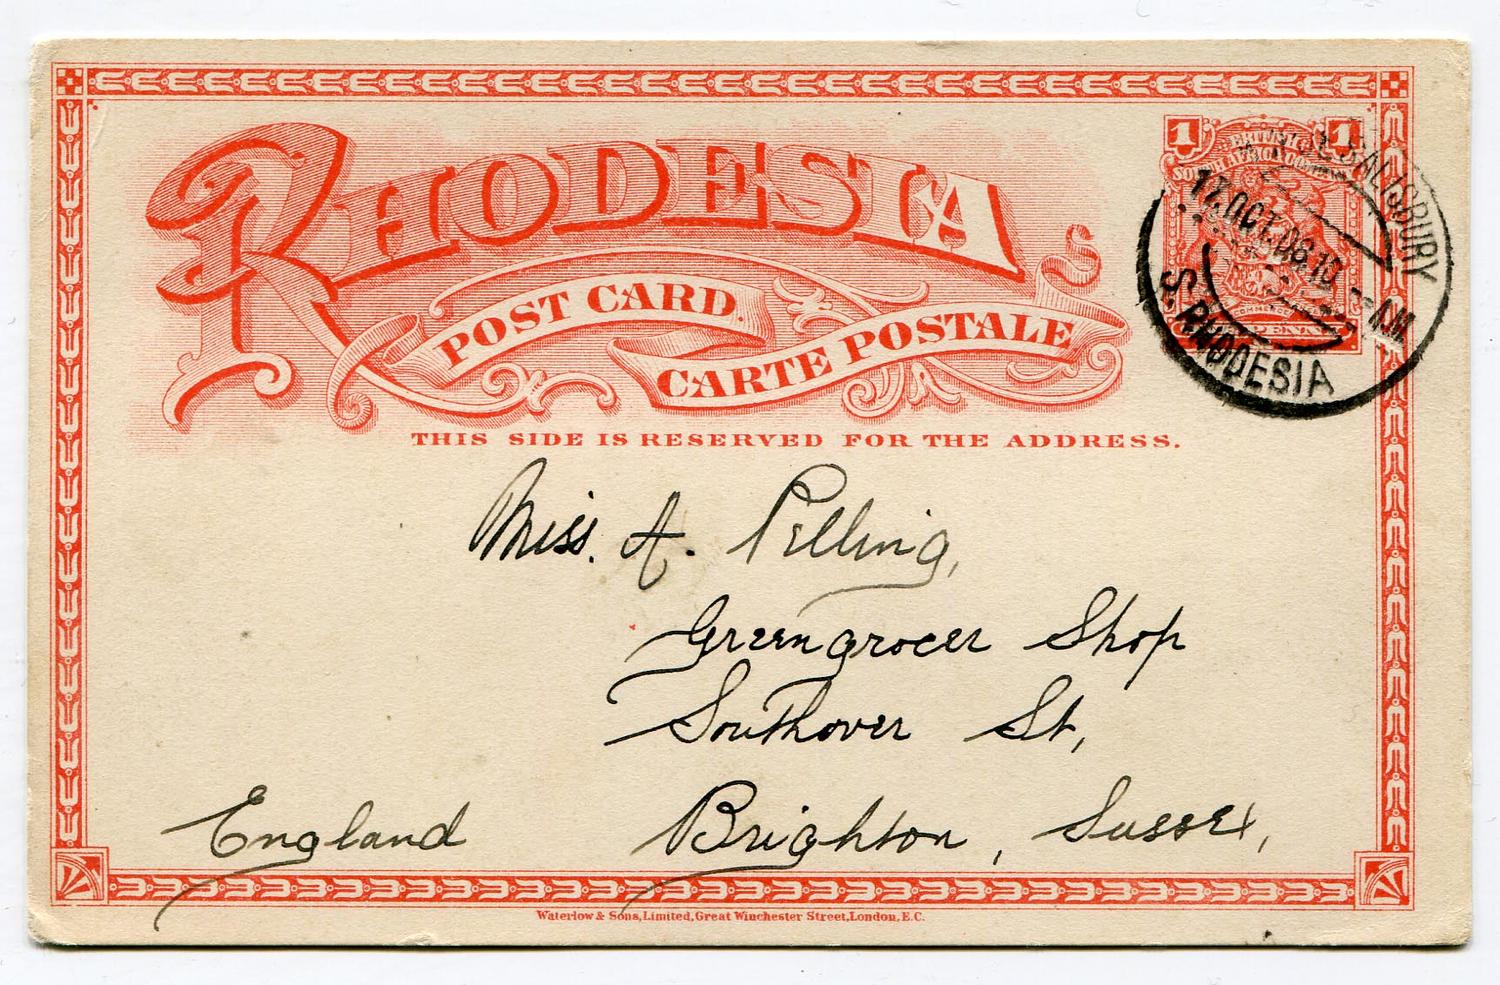 RHODESIA
POST CARD.
CARTE POSTALE
THIS SIDE IS RESERVED FOR THE ADDRESS.
1 1
BRITISH
SOUTH AFRICA COMPANY
COMMERCE
SALISBURY
17. OCT. 06. 10 - A.M.
S. RHODESIA
Miss. A. Pelling,
Greengrocer Shop
Southover St,
Brighton, Sussex,
England
Waterlow & Sons, Limited, Great Winchester Street, London, E.C.